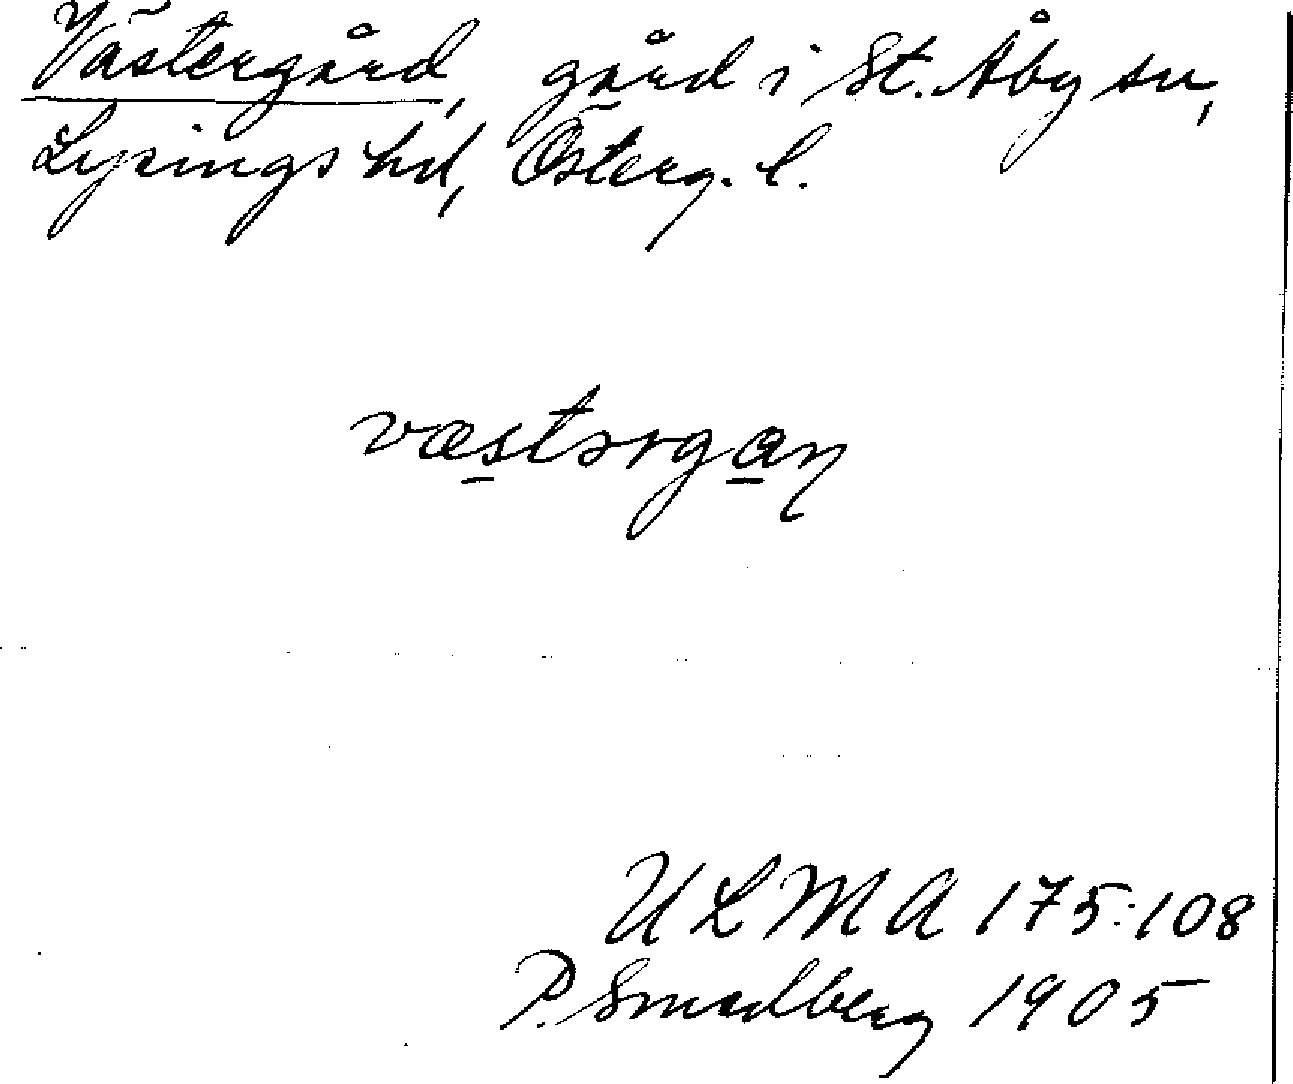 Västergård, gård i St. Åby sn,
Lysings hd, Österg. l.
væstərgaɲ
ULMA 175:108
P. Smedberg 1905